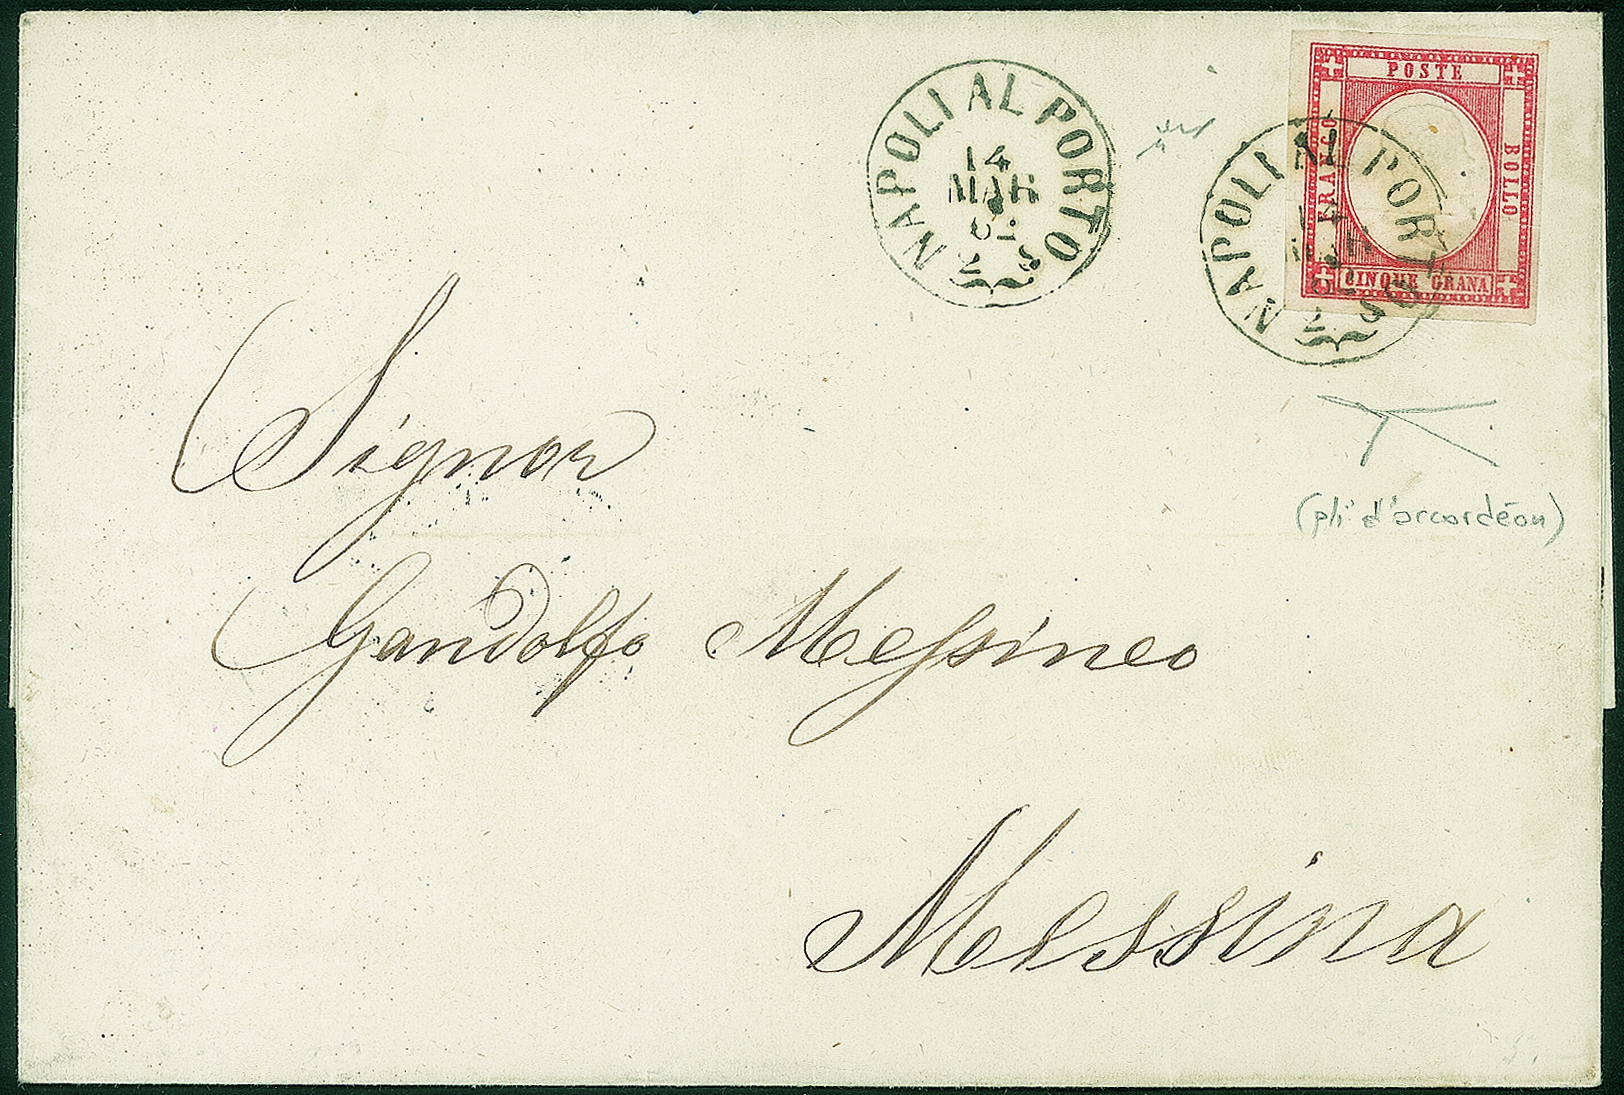 NAPOLI AL PORTO
14
MAR
62
2 S
POSTE
FRANCO
BOLLO
CINQUE GRANA
NAPOLI AL PORTO
14
MAR
2 S
(pli d'accordéon)
Signor
Gandolfo Messineo
Messina